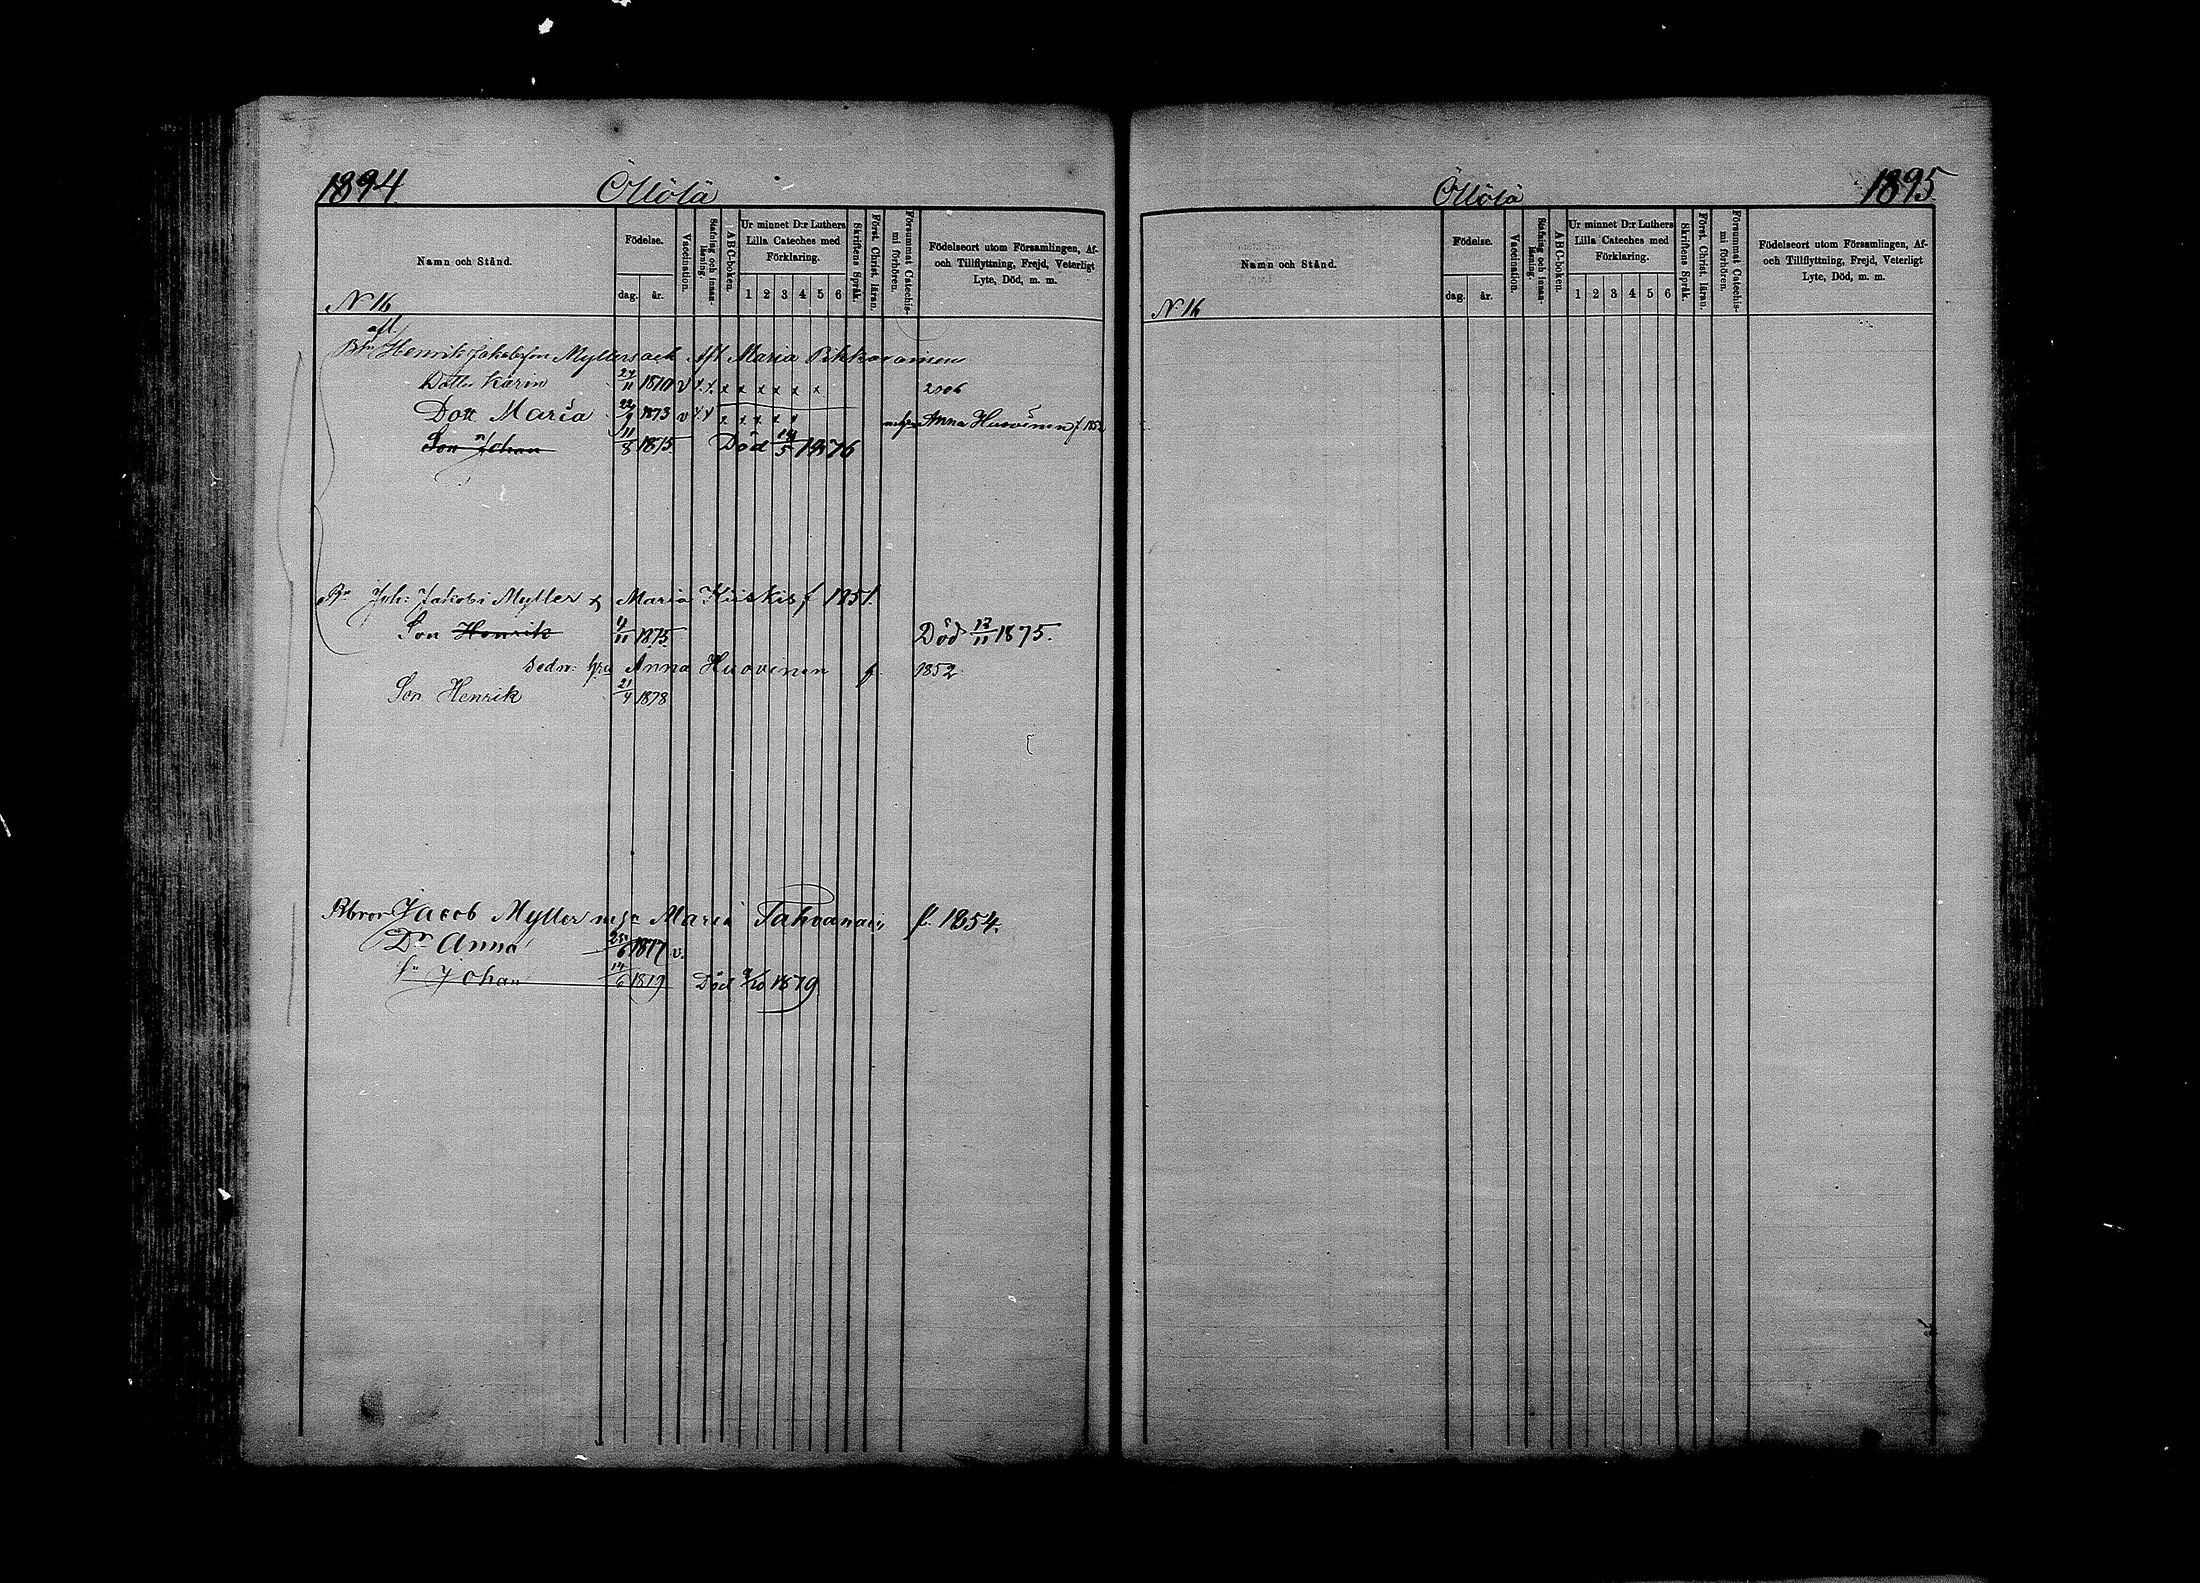 1894. Ollölä
Namn och Stånd.
Födelse.
dag. år.
Vaccination.
Stafning och innanläsning.
ABC-boken.
Ur minnet D:r Luthers Lilla Cateches med Förklaring.
1 2 3 4 5 6
Skriftens Språk.
Först. Christ. läran.
Försummat Catechismi förhören.
Födelseort utom Församlingen, Af- och Tillflyttning, Frejd, Veterligt Lyte, Död, m. m.
N 16
afl.
Henrik Jakobsson Myller och Afl Maria Pikkarainen
Dotter Karin 24/11 1870 v x x x x x x 2006
Dott Maria 22/9 1873 v x x x x x Anna Huovinen f 1852
Son Johan 11/8 1875. Död 14/5 1876
Joh: Jakobs: Myller & Maria Kiiskis f 1851.
Son Henrik 4/11 1875. Död 12/11 1875.
sedn: hu Anna Huovinen f 1852
Son Henrik 21/4 1878
Jacob Myller Maria Tahvanain f. 1854.
Dr Anna 25/6 1877 v.
Sn Johan 14/6 1879 Död 9/10 1879
Ollölä 1895.
Namn och Stånd.
Födelse.
dag. år.
Vaccination.
Stafning och innanläsning.
ABC-boken.
Ur minnet D:r Luthers Lilla Cateches med Förklaring.
1 2 3 4 5 6
Skriftens Språk.
Först. Christ. läran.
Försummat Catechismi förhören.
Födelseort utom Församlingen, Af- och Tillflyttning, Frejd, Veterligt Lyte, Död, m. m.
N 16